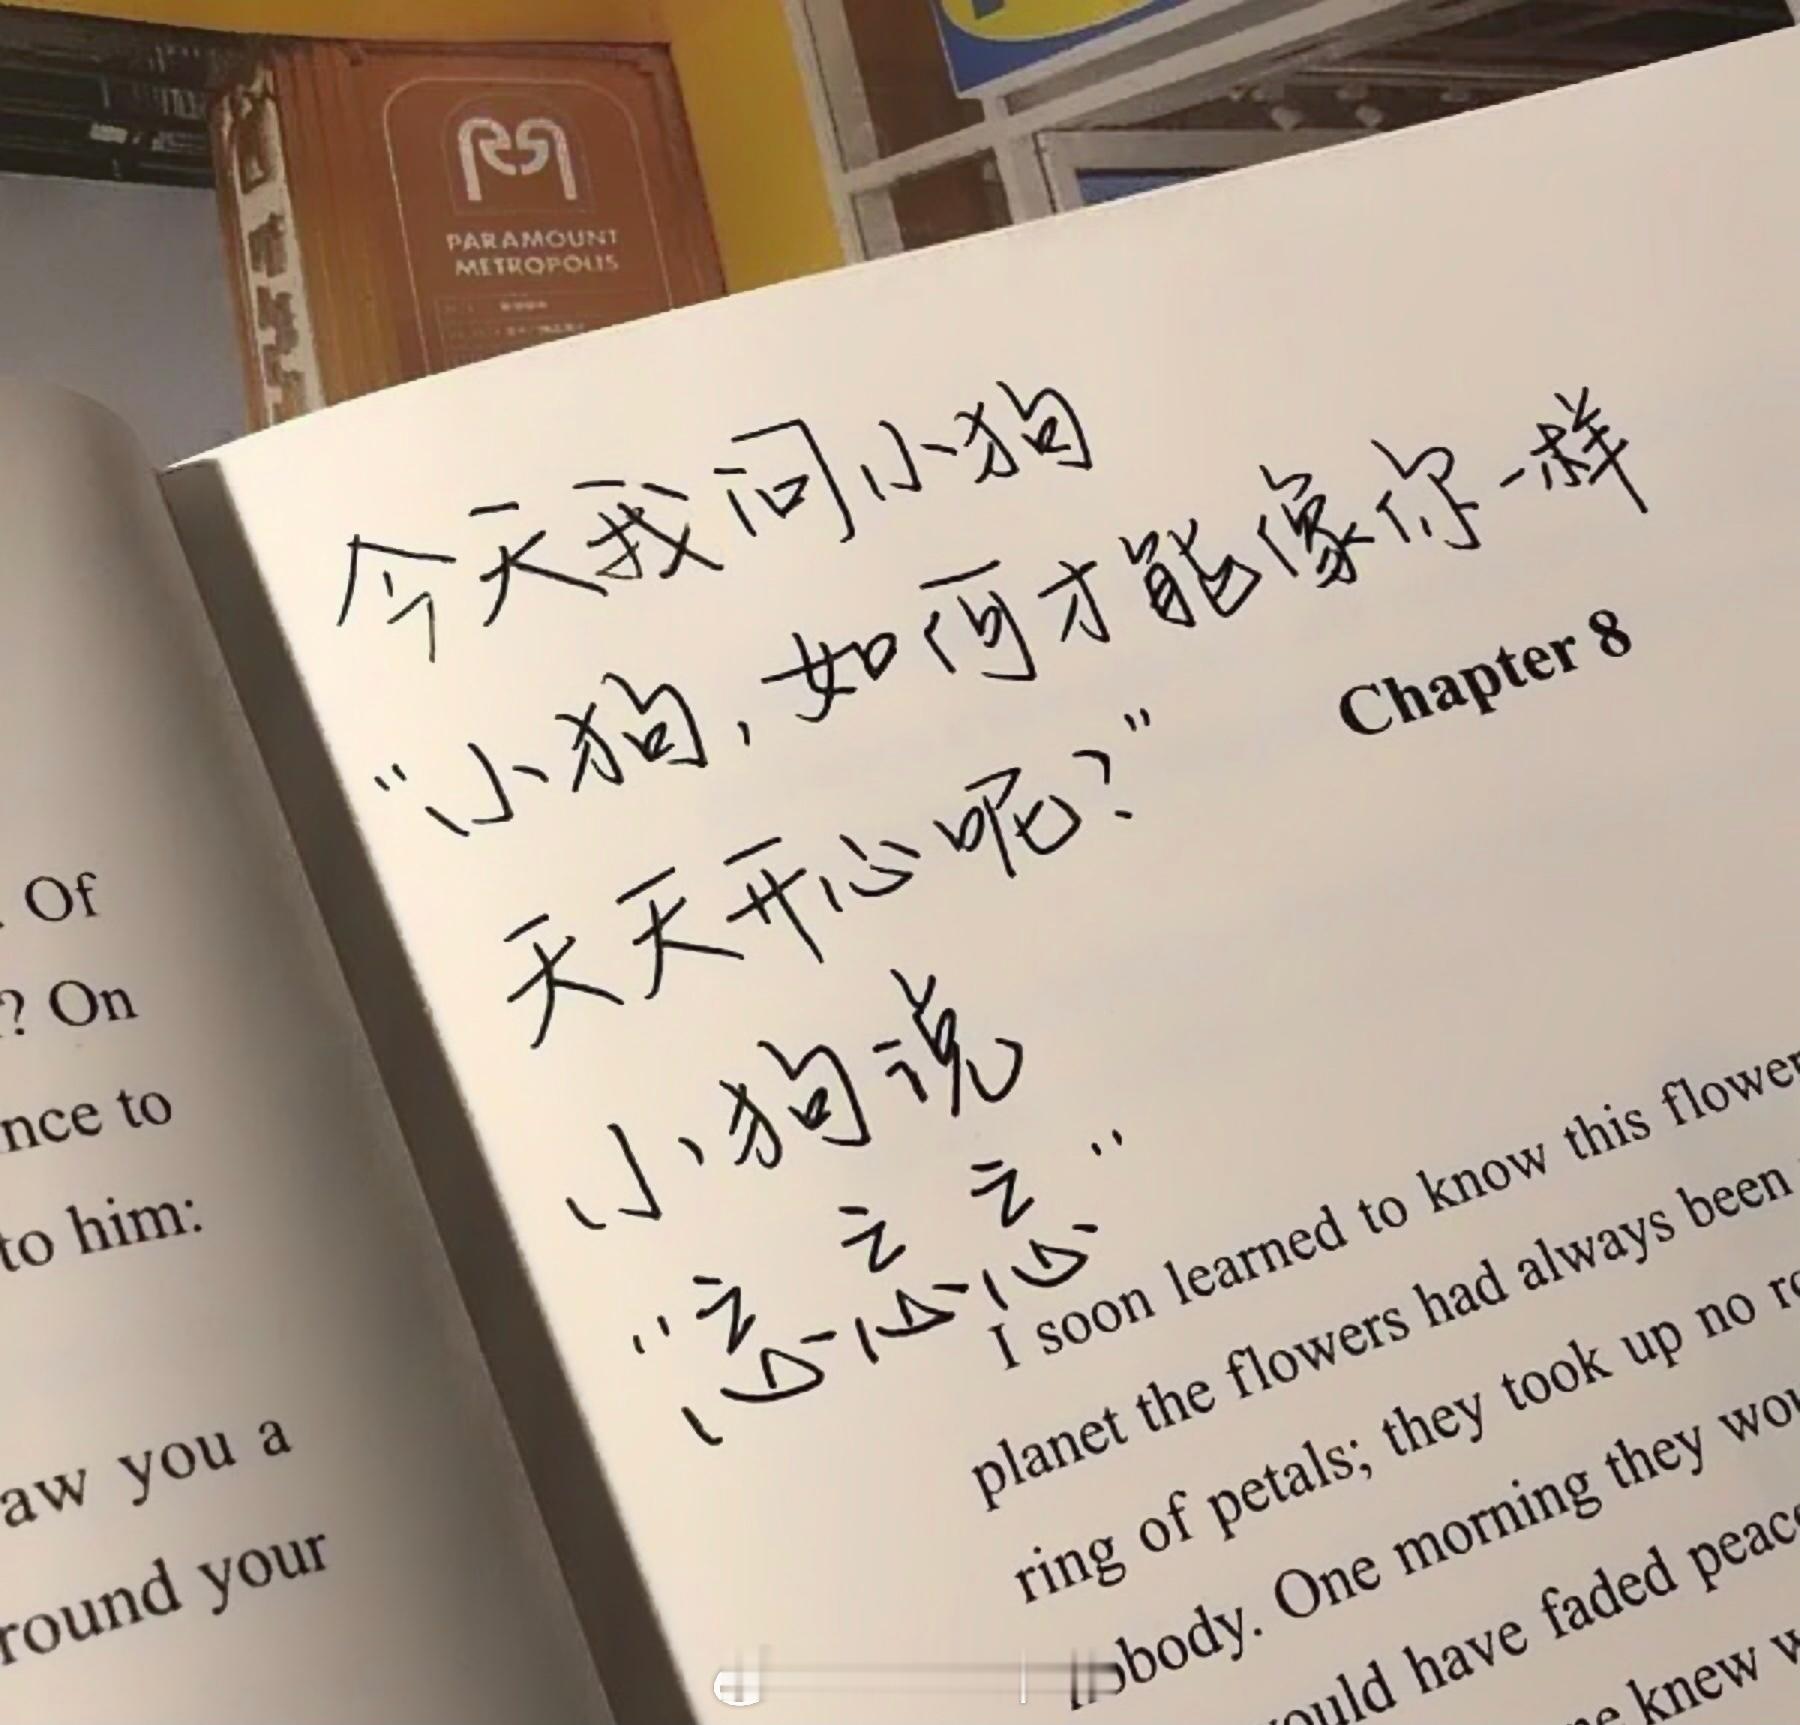 PARAMOUNT
METROPOLIS
今天我问小狗
“小狗,如何才能像你一样
天天开心呢?”
小狗说
“忘忘忘”
Chapter 8
I soon learned to know this flower
planet the flowers had always been
ring of petals; they took up no
nobody. One morning they
would have faded
knew
Of
? On
nce to
to him:
aw you a
round your